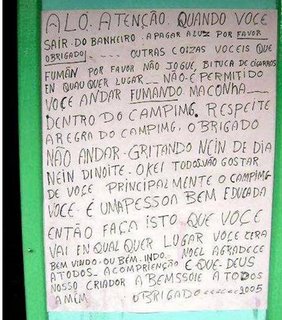 ALO. ATENÇÃO. QUANDO VOCE
SAÍR. DO BANHEIRO. APAGAR A LUZ POR FAVOR
OBRIGADO ..... OUTRAS COIZAS VOCEIS QUE
FUMÃN POR FAVOR NÃO JOGUE, BITUCA DE CIGARROS
EN QUALQUER LUGAR __ NÃO É PERMITIDO
VOCE ANDAR FUMANDO MACONHA__
DENTRO DO CAMPIMG. RESPEITE
A REGRA DO CAMPIMG, OBRIGADO
NÃO ANDAR-GRITANDO NEIN DE DIA
NEIN DINOITE. OKEI TODOS VÃO GOSTAR
DE VOCE PRINCIPALMENTE O CAMPIMG
VOCE. É UNA PESSOA BEM EDUCADA
ENTÃO FAÇA ISTO QUE VOCE
VAI EN QUALQUER LUGAR VOCE SERA
BEM VINDO. OU BEM. INDO. NOEL AGRADECE
A TODOS. A COMPRIENÇÃO E QUE DEUS
NOSSO CRIADOR A BEMSSOIE A TODOS
AMÉM OBRIGADO ........ 2005